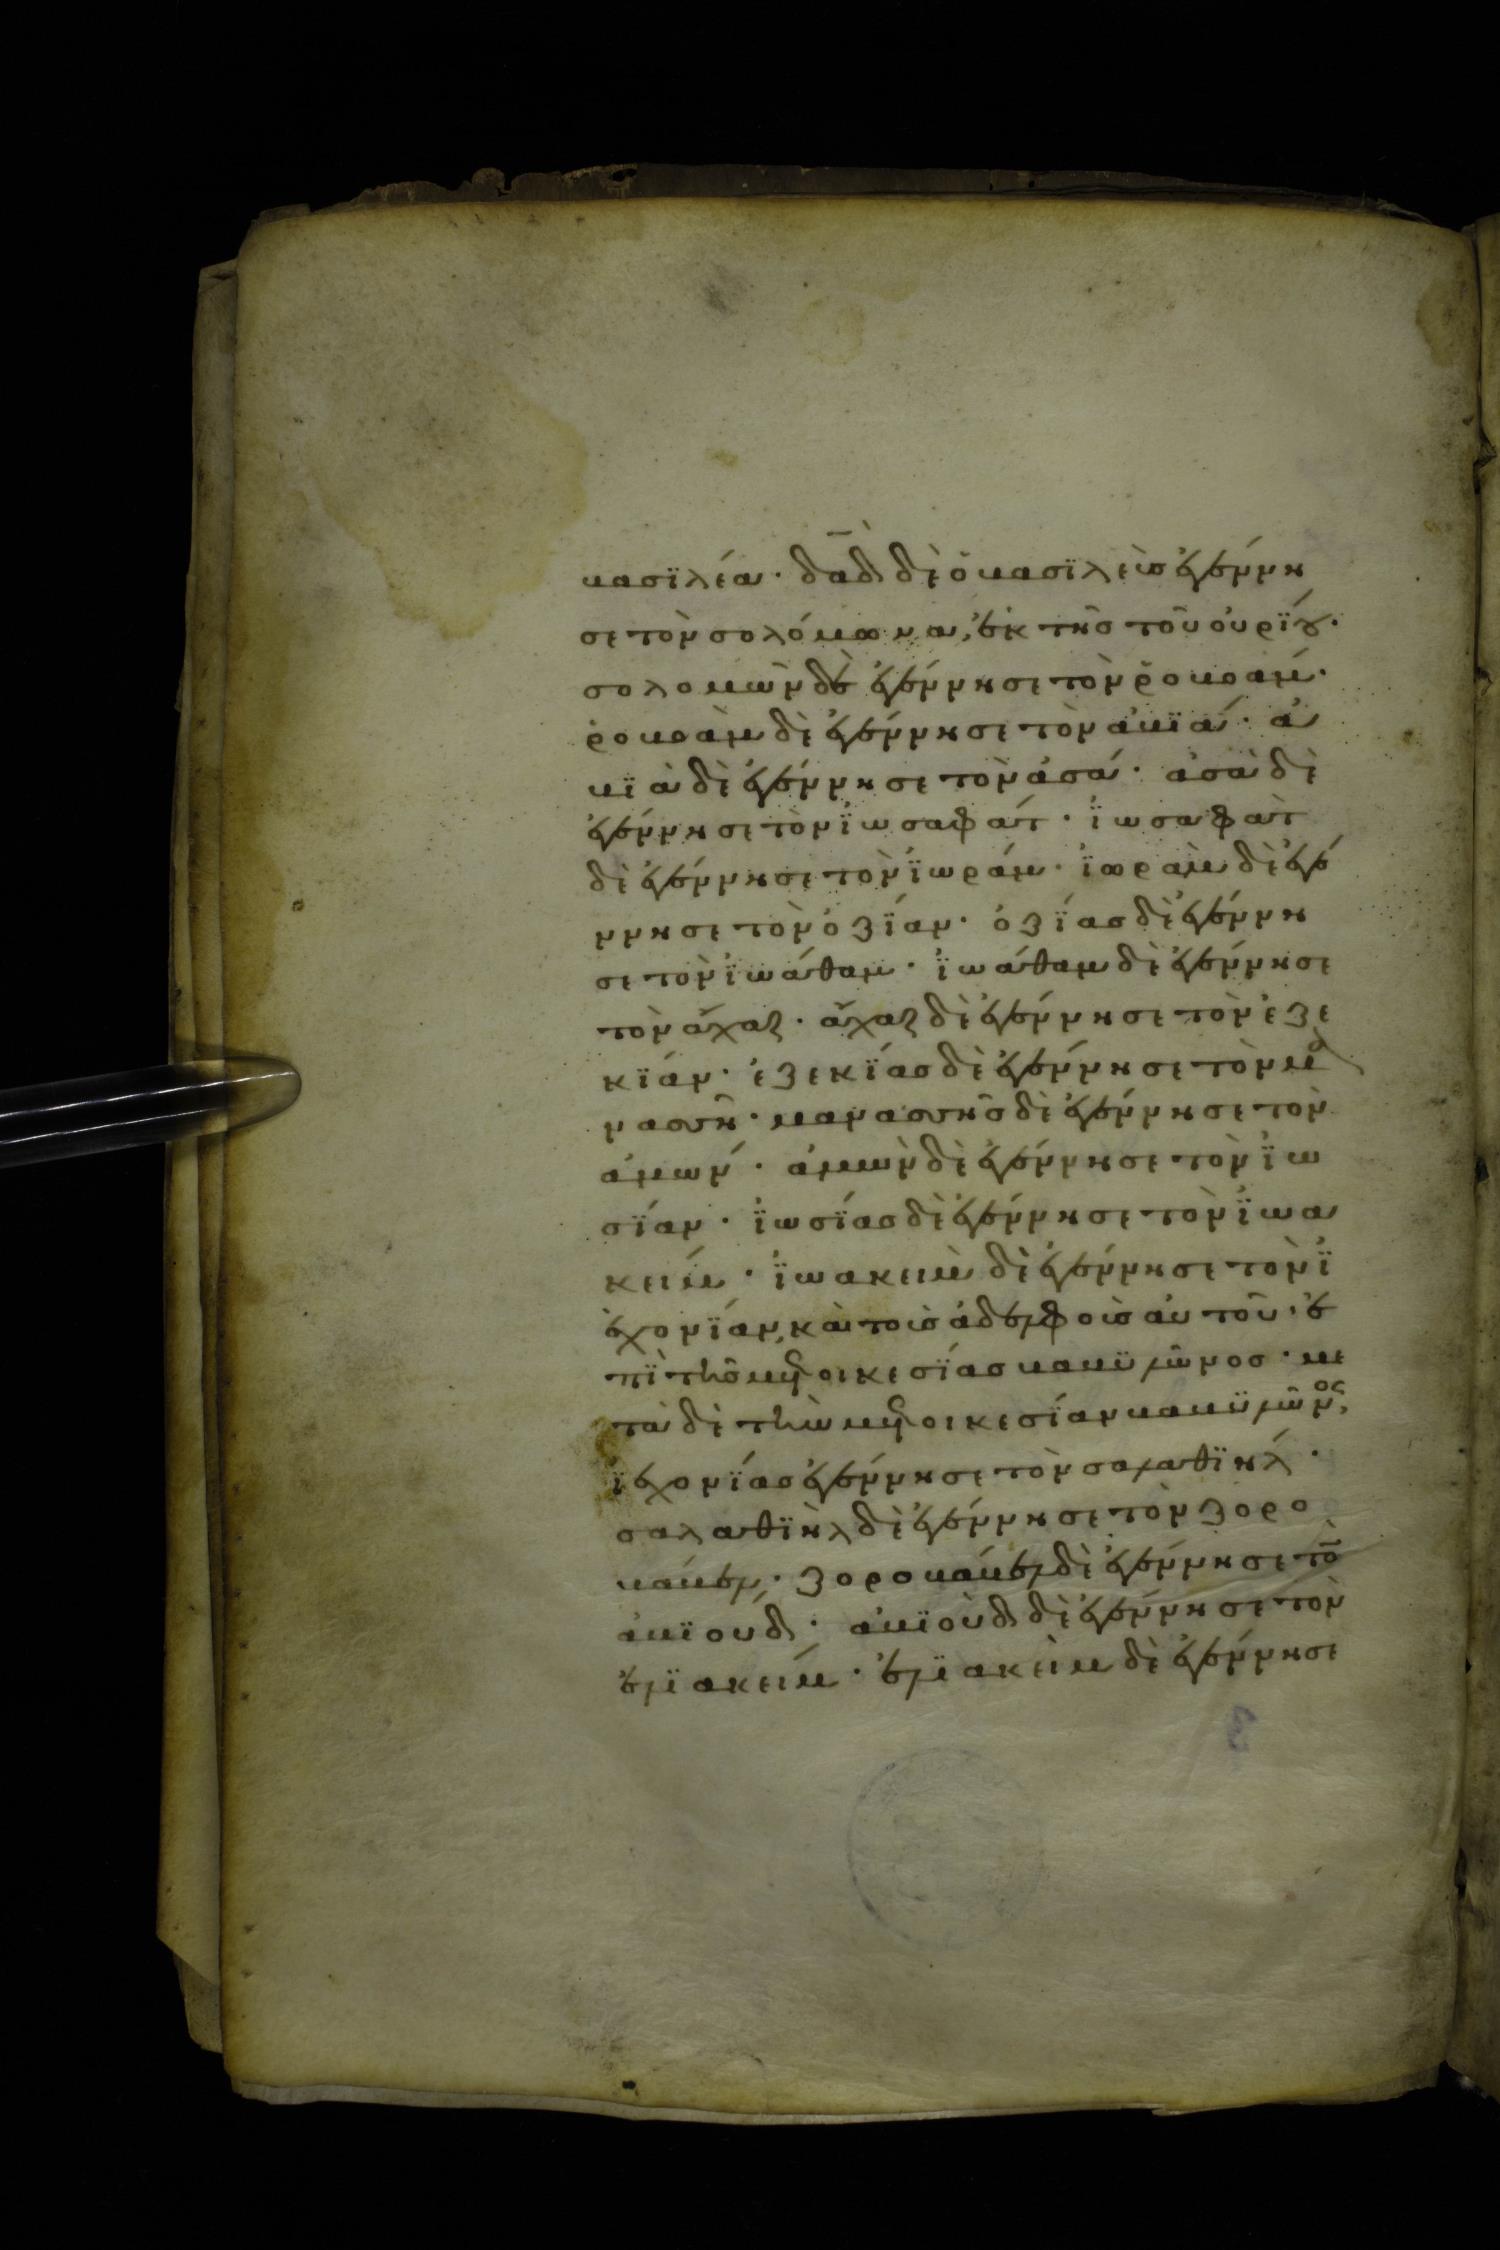 βασϊλέα· δᾱδ̀ δὲ ὁ βασϊλεὺσ ἐγέννη
σε τὸν σολόμωνα, ἐκ τῆσ τοῦ οὐρίου·
σολομὼν δὲ ἐγέννησε τὸν ῥοβοάμ·
ῥοβοὰμ δὲ ἐγέννησε τὸν ἀβϊά· ἀ
βϊὰ δὲ ἐγέννησε τὸν ἀσά· ἀσὰ δὲ
ἐγέννησε τὸν ἰ̈ωσαφάτ· ἰ̈ωσαφὰτ
δὲ ἐγέννησε τὸν ἰ̈ωράμ· ἰ̈ωρὰμ δὲ ἐγέ
ννησε τὸν ὀζΐαν· ὀζΐασ δὲ ἐγέννη
σε τὸν ἰ̈ωάθαμ· ἰ̈ωάθαμ δὲ ἐγέννησε
τὸν ἄχαζ· ἄχαζ δὲ ἐγέννησε τὸν ἐζε
κΐαν· ἐζεκΐασ δὲ ἐγέννησε τὸν μα
νασσῆ· μανασσῆσ δὲ ἐγέννησε τὸν
ἀμών· ἀμὼν δὲ ἐγέννησε τὸν ἰ̈ω
σΐαν· ἰ̈ωσΐασ δὲ ἐγέννησε τὸν ἰ̈ωα
κείμ· ἰ̈ωακεὶμ δὲ ἐγέννησε τὸν ἰ̈
εχονΐαν, καὶ τοὺσ ἀδελφοὺσ αὐτοῦ· ἐ
πὶ τῆσ μετοικεσΐασ βαβϋλῶνοσ· με
τὰ δὲ τὴν μετοικεσΐαν βαβϋλῶνος,
ϊεχονΐασ ἐγέννησε τὸν σαλαθϊήλ·
σαλαθϊὴλ δὲ ἐγέννησε τὸν ζορο
βάβελ· ζοροβάβελ δὲ ἐγέννησε τὸ̄
ἀβϊούδ· ἀβϊοὺδ δὲ ἐγέννησε τὸν
ἐλϊακείμ· ἐλϊακεὶμ δὲ ἐγέννησε